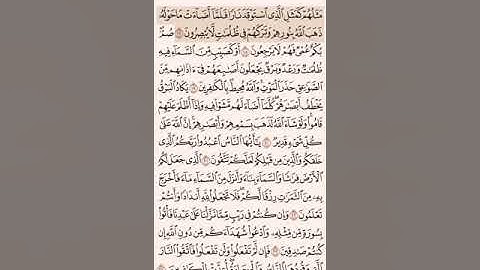 مَثَلُهُمْ كَمَثَلِ ٱلَّذِى ٱسْتَوْقَدَ نَارًا فَلَمَّآ أَضَآءَتْ مَا حَوْلَهُۥ
ذَهَبَ ٱللَّهُ بِنُورِهِمْ وَتَرَكَهُمْ فِى ظُلُمَٰتٍ لَّا يُبْصِرُونَ ١٧ صُمٌّۢ
بُكْمٌ عُمْىٌ فَهُمْ لَا يَرْجِعُونَ ١٨ أَوْ كَصَيِّبٍ مِّنَ ٱلسَّمَآءِ فِيهِ
ظُلُمَٰتٌ وَرَعْدٌ وَبَرْقٌ يَجْعَلُونَ أَصَٰبِعَهُمْ فِىٓ ءَاذَانِهِم مِّنَ
ٱلصَّوَٰعِقِ حَذَرَ ٱلْمَوْتِ وَٱللَّهُ مُحِيطٌۢ بِٱلْكَٰفِرِينَ ١٩ يَكَادُ ٱلْبَرْقُ
يَخْطَفُ أَبْصَٰرَهُمْ كُلَّمَآ أَضَآءَ لَهُم مَّشَوْا۟ فِيهِ وَإِذَآ أَظْلَمَ عَلَيْهِمْ
قَامُوا۟ وَلَوْ شَآءَ ٱللَّهُ لَذَهَبَ بِسَمْعِهِمْ وَأَبْصَٰرِهِمْ إِنَّ ٱللَّهَ عَلَىٰ
كُلِّ شَىْءٍ قَدِيرٌ ٢٠ يَٰٓأَيُّهَا ٱلنَّاسُ ٱعْبُدُوا۟ رَبَّكُمُ ٱلَّذِى
خَلَقَكُمْ وَٱلَّذِينَ مِن قَبْلِكُمْ لَعَلَّكُمْ تَتَّقُونَ ٢١ ٱلَّذِى جَعَلَ لَكُمُ
ٱلْأَرْضَ فِرَٰشًا وَٱلسَّمَآءَ بِنَآءً وَأَنزَلَ مِنَ ٱلسَّمَآءِ مَآءً فَأَخْرَجَ بِهِۦ
مِنَ ٱلثَّمَرَٰتِ رِزْقًا لَّكُمْ فَلَا تَجْعَلُوا۟ لِلَّهِ أَندَادًا وَأَنتُمْ
تَعْلَمُونَ ٢٢ وَإِن كُنتُمْ فِى رَيْبٍ مِّمَّا نَزَّلْنَا عَلَىٰ عَبْدِنَا فَأْتُوا۟
بِسُورَةٍ مِّن مِّثْلِهِۦ وَٱدْعُوا۟ شُهَدَآءَكُم مِّن دُونِ ٱللَّهِ إِن
كُنتُمْ صَٰدِقِينَ ٢٣ فَإِن لَّمْ تَفْعَلُوا۟ وَلَن تَفْعَلُوا۟ فَٱتَّقُوا۟ ٱلنَّارَ